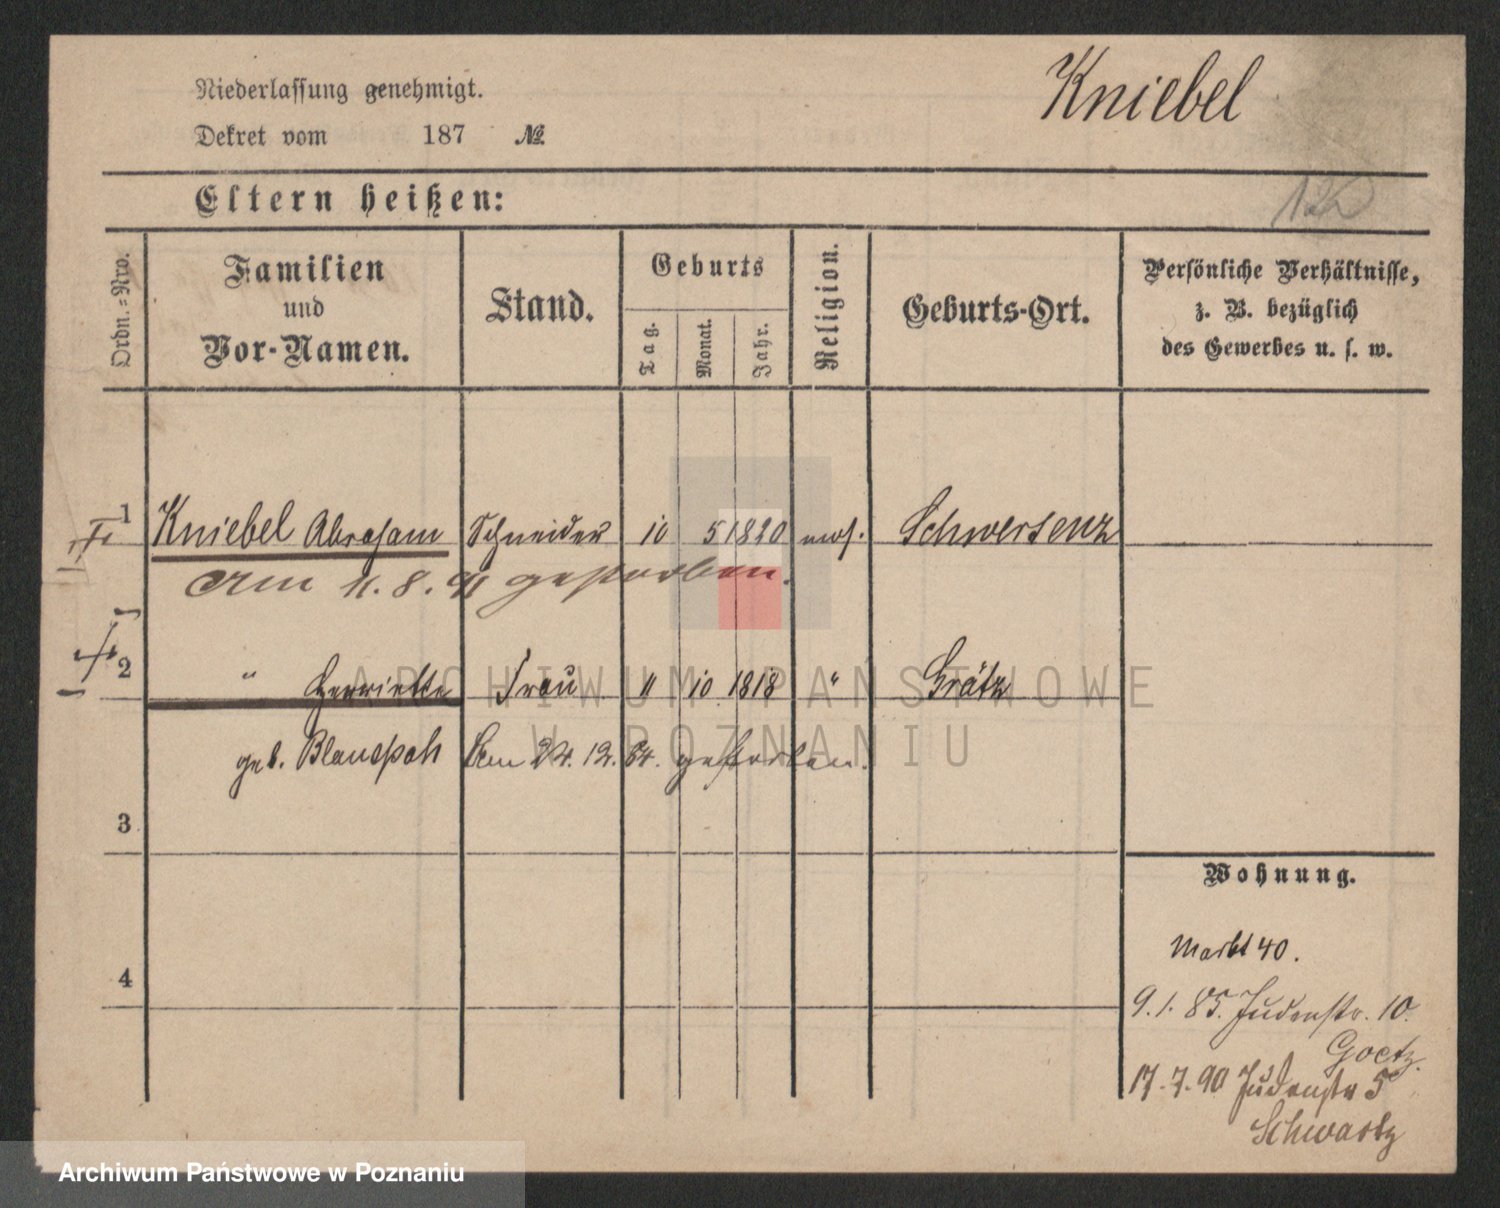 Niederlassung genehmigt.
Kniebel
Dekret vom 187 №
Eltern heißen:
122
Ordn.=Nro.
Familien
und
Vor-Namen.
Stand.
Geburts
Tag.
Monat.
Jahr.
Religion.
Geburts-Ort.
Persönliche Verhältnisse,
z. B. bezüglich
des Gewerbes u. s. w.
1 Kniebel Abraham Schneider 10 5 1820 mos. Schwersenz
Am 11. 8. 91 gestorben.
2 " Henriette Frau 11 10 1818 " Grätz
geb. Am 24. 12. 84. gestorben.
3
4
Wohnung.
Markt 40.
9. 1. 85. Judenstr. 10.
Goetz.
17. 7. 90 Judenstr 5
Schwartz
ARCHIWUM PAŃSTWOWE
W POZNANIU
Archiwum Państwowe w Poznaniu